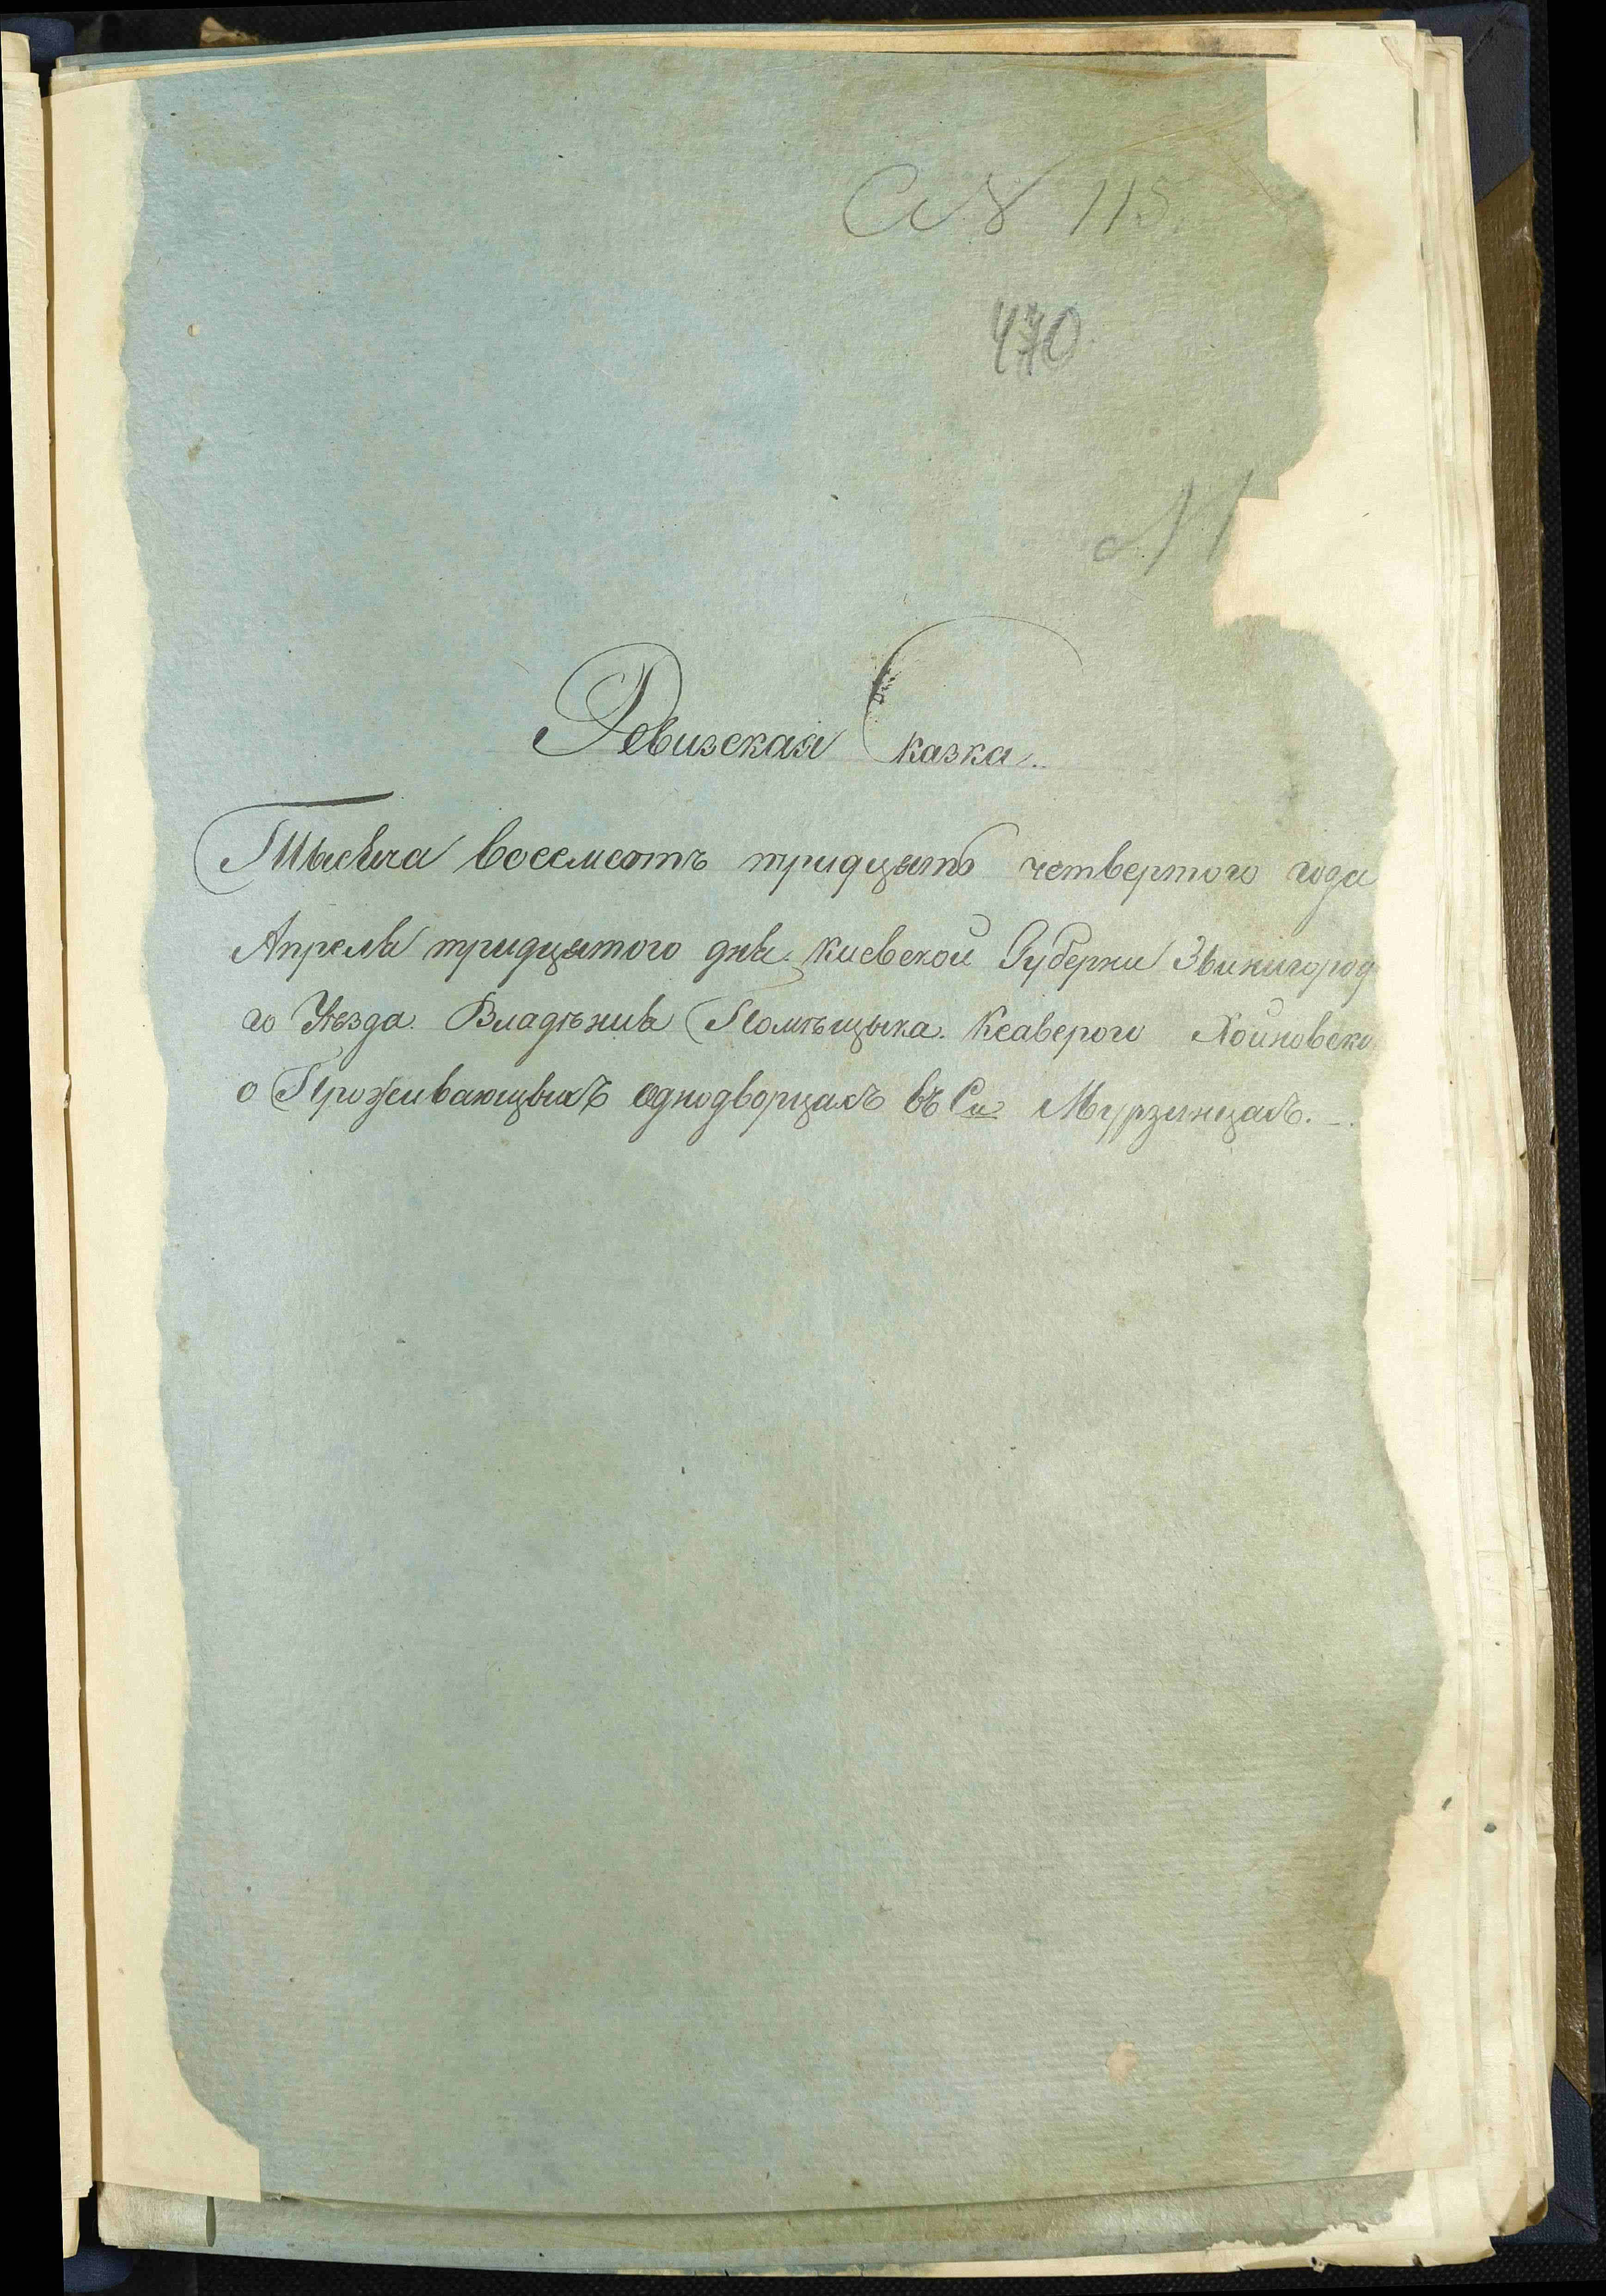 115.
470.
№ 1
Ревизская Сказка.
Тысяча восемсотъ тридцять четвертого года
Апреля тридцятого дня. Киевской Губерни Звинигород
го Уезда. Владѣния Помѣщыка. Ксаверого Хойновско
о Проживающыхъ однодворцахъ въ Се Мурзинцахъ.